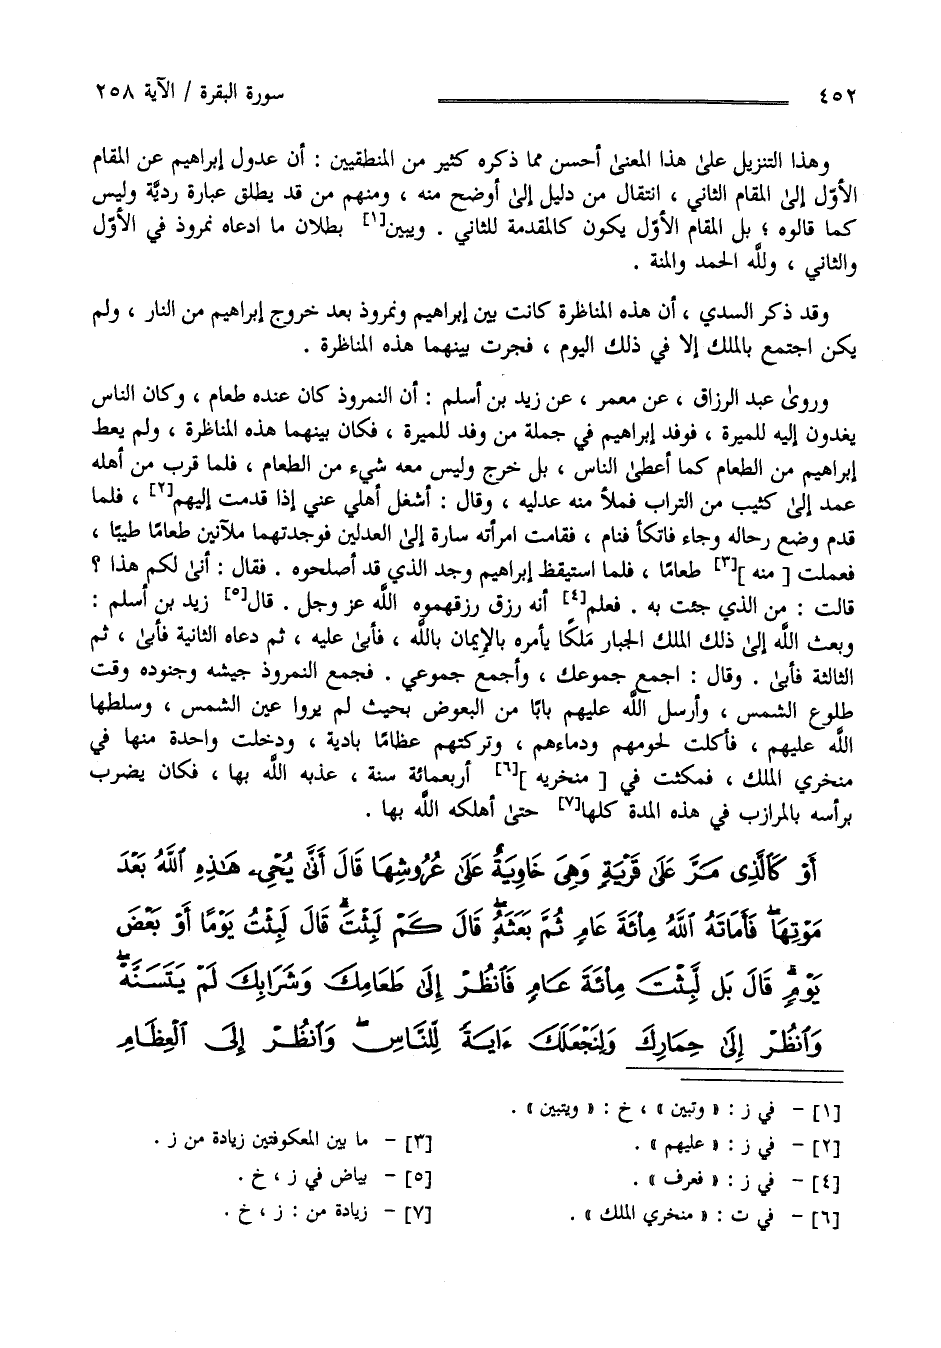 ٤٥٢ سورة البقرة / الآية ٢٥٨
وهذا التنزيل علىٰ هذا المعنىٰ أحسن مما ذكره كثير من المنطقيين : أن عدول إبراهيم عن المقام
الأوّل إلىٰ المقام الثاني ، انتقال من دليل إلىٰ أوضح منه ، ومنهم من قد يطلق عبارة رديَّة وليس
كما قالوه ؛ بل المقام الأوّل يكون كالمقدمة للثاني . ويبين[١] بطلان ما ادعاه نمروذ في الأوّل
والثاني ، وللَّه الحمد والمنة .
وقد ذكر السدي ، أن هذه المناظرة كانت بين إبراهيم ونمروذ بعد خروج إبراهيم من النار ، ولم
يكن اجتمع بالملك إلا في ذلك اليوم ، فجرت بينهما هذه المناظرة .
وروىٰ عبد الرزاق ، عن معمر ، عن زيد بن أسلم : أن النمروذ كان عنده طعام ، وكان الناس
يغدون إليه للميرة ، فوفد إبراهيم في جملة من وفد للميرة ، فكان بينهما هذه المناظرة ، ولم يعط
إبراهيم من الطعام كما أعطىٰ الناس ، بل خرج وليس معه شيء من الطعام ، فلما قرب من أهله
عمد إلىٰ كثيب من التراب فملأ منه عدليه ، وقال : أشغل أهلي عني إذا قدمت إليهم[٢] ، فلما
قدم وضع رحاله وجاء فاتكأ فنام ، فقامت امرأته سارة إلىٰ العدلين فوجدتهما ملآنين طعامًا طيبًا ،
فعملت [ منه ][٣] طعامًا ، فلما استيقظ إبراهيم وجد الذي قد أصلحوه . فقال : أنىٰ لكم هذا ؟
قالت : من الذي جئت به . فعلم[٤] أنه رزق رزقهموه اللَّه عز وجل . قال[٥] زيد بن أسلم :
وبعث اللَّه إلىٰ ذلك الملك الجبار مَلَكًا يأمره بالإيمان باللَّه ، فأبىٰ عليه ، ثم دعاه الثانية فأبىٰ ، ثم
الثالثة فأبىٰ . وقال : اجمع جموعك ، وأجمع جموعي . فجمع النمروذ جيشه وجنوده وقت
طلوع الشمس ، وأرسل اللَّه عليهم بابًا من البعوض بحيث لم يروا عين الشمس ، وسلطها
اللَّه عليهم ، فأكلت لحومهم ودماءهم ، وتركتهم عظامًا بادية ، ودخلت واحدة منها في
منخري الملك ، فمكثت في [ منخريه ][٦] أربعمائة سنة ، عذبه اللَّه بها ، فكان يضرب
برأسه بالمرازب في هذه المدة كلها[٧] حتىٰ أهلكه اللَّه بها .
أَوْ كَٱلَّذِى مَرَّ عَلَىٰ قَرْيَةٍ وَهِىَ خَاوِيَةٌ عَلَىٰ عُرُوشِهَا قَالَ أَنَّىٰ يُحْىِۦ هَٰذِهِ ٱللَّهُ بَعْدَ
مَوْتِهَا ۖ فَأَمَاتَهُ ٱللَّهُ مِا۟ئَةَ عَامٍ ثُمَّ بَعَثَهُۥ ۖ قَالَ كَمْ لَبِثْتَ ۖ قَالَ لَبِثْتُ يَوْمًا أَوْ بَعْضَ
يَوْمٍ ۖ قَالَ بَل لَّبِثْتَ مِا۟ئَةَ عَامٍ فَٱنظُرْ إِلَىٰ طَعَامِكَ وَشَرَابِكَ لَمْ يَتَسَنَّهْ ۖ
وَٱنظُرْ إِلَىٰ حِمَارِكَ وَلِنَجْعَلَكَ ءَايَةً لِّلنَّاسِ ۖ وَٱنظُرْ إِلَى ٱلْعِظَامِ
[١] – في ز : « وتبين » ، خ : « ويتبين » .
[٢] – في ز : « عليهم » . [٣] – ما بين المعكوفتين زيادة من ز .
[٤] – في ز : « فعرف » . [٥] – بياض في ز ، خ .
[٦] – في ت : « منخري الملك » . [٧] – زيادة من : ز ، خ .